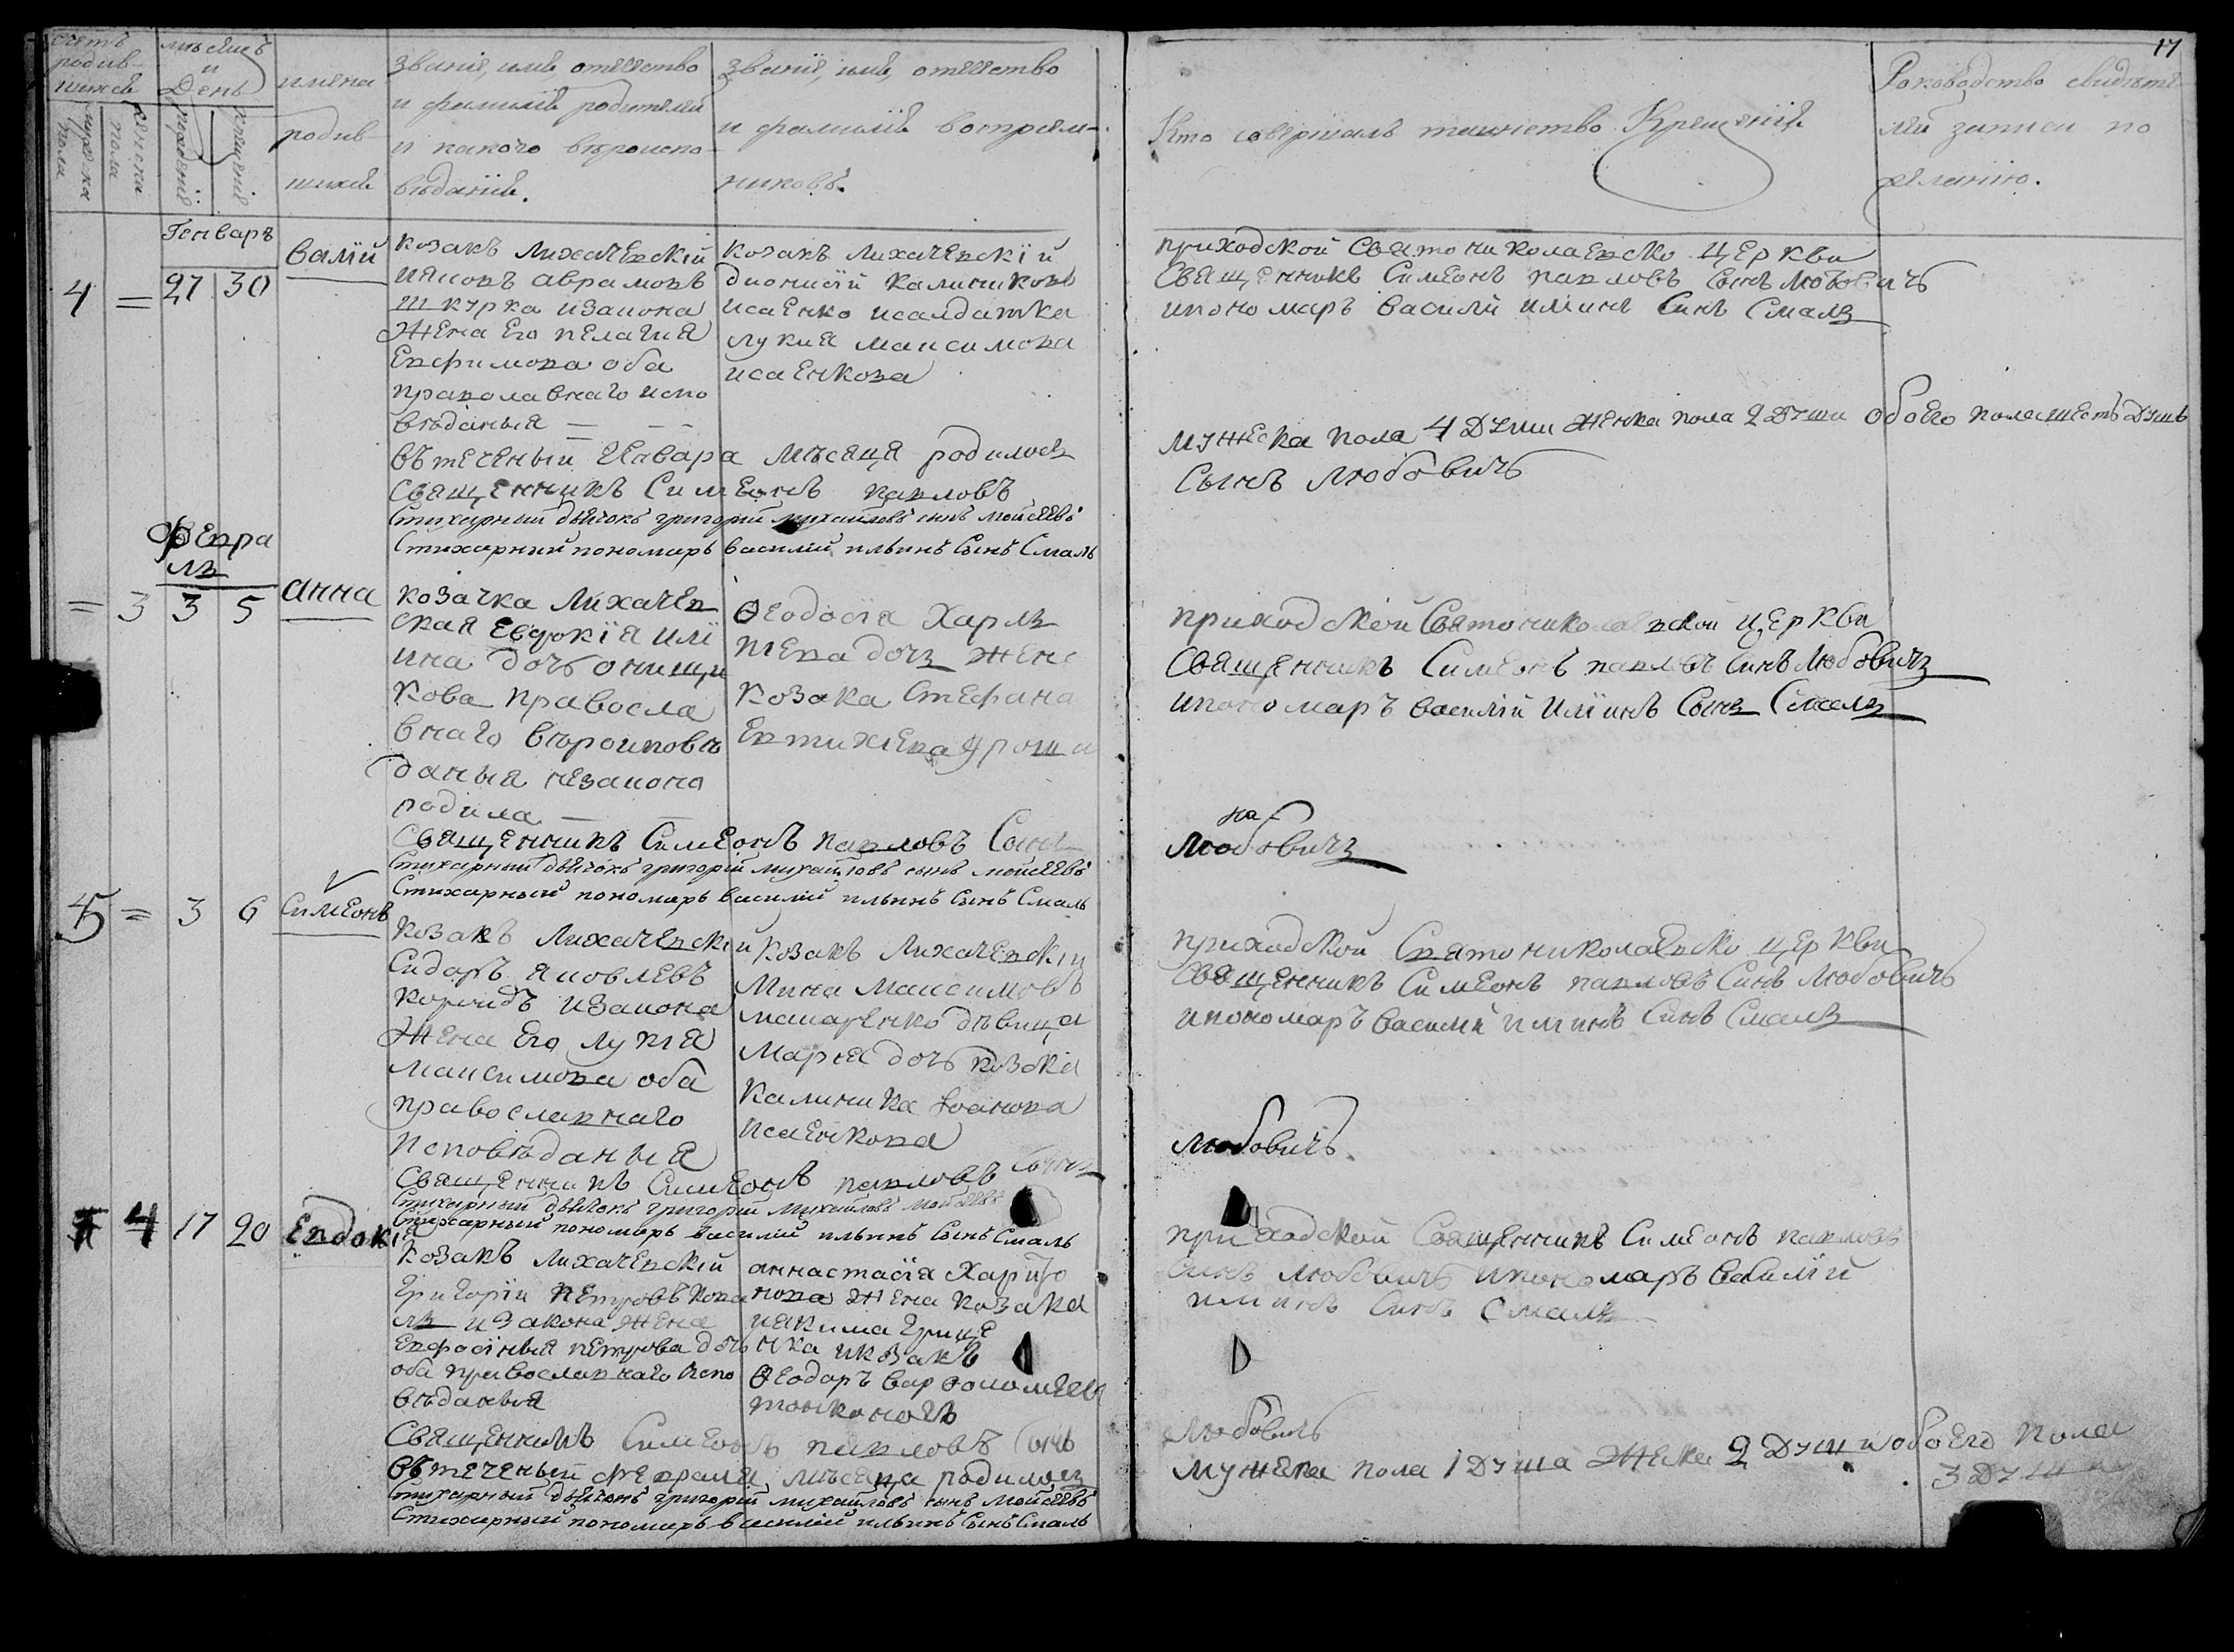 17
счетъ родив- шихся
мѣсяцъ и День
имена родив- шихся
званіе, имя отчество
и фамилія родителей
и какого вѣроиспо-
вѣданія.
званіе, имя, отчество
и фамилія воспріем-
никовъ.
Кто совершалъ таинство Крещенія
свидѣте-
лей записи по
желанію.
мужеска пола
женска пола
рожденія
крещенія
Генваря
4 = 27 30
васілій
козакъ лихачевскій
ияковъ аврамовъ
шкурка изаконa
жена его пелагия
евфимова оба
православнаго испо
вѣданыя
козакъ лихачевскій
дионисій калиниковъ
исаенко исалдатка
лукия максимова
исаенкова
приходской святониколаевско церкви
священникъ симеонъ павловъ сынъ любовичъ
ипономаръ василій илиинъ синъ смаль
вътеченыи генвара мѣсяця родилось
мужеска пола 4 души женска пола 2 души обоего пола шесть душъ
священникъ симеонъ павловъ
сынъ любовичъ
Стихарный дьячокъ григорій михайловъ сынъ мойсеевъ
Стихарный пономарь василій ильинъ сынъ Смаль
февра
ля
= 3 3 5
анна
козачка лихачев
ская евдокія илі
ина дочъ онищи
кова правосла
внаго вѣроиповѣ
даныя незаконо
родила
Ѳеодосія харла
пиева дочь жена
козака стефана
евтихиева яроша
приходской святониколаевской церкви
священникъ симеонъ павловъ синъ любовичь
ипономаръ василій иліинъ сынъ смаль
священникъ симеонъ павловъ сынъ
любовичь
Стихарный дьячокъ григорій михайловъ сынъ мойсеевъ
Стихарный пономарь василій ильинъ сынъ Смаль
5 = 3 6
симеонъ
козакъ лихачевскій
сидоръ яковлевъ
изаконa
жена его лукия
максимова оба
православнаго
исповѣданыя
козакъ лихачевскій
мина максимовъ
макаренко дѣвица
мария дочъ козака
калиника иоанова
исаенкова
приходской святониколаевско церкви
священникъ симеонъ павловъ синъ любовичъ
ипономаръ василій илиинъ синъ смаль
священникъ симеонъ павловъ сынъ
любовичъ.
Стихарный дьячокъ григорій михайловъ мойсеевъ
Стихарный пономарь василій ильинъ сынъ Смаль
4 17 20
евдокія
козакъ лихачевскій
григорій петровъ кова
ль изакона жена
евфосінья петрова дочъ
оба православнаго испо
вѣданыя
анастасія харито
нова жена козака
иякима грице
нка икозакъ
Ѳеодоръ варѳоломеевъ
тонконогъ
приходской священникъ симеонъ павловъ
синъ любовичъ ипономаръ василій
илиинъ синъ смаль
священникъ симеонъ павловъ сынъ
любовичъ
вътеченыи февраля мѣсяца родилось
мужеска пола 1 душа женска 2 души обоего пола
3 души
Стихарный дьячокъ григорій михайловъ сынъ мойсеевъ
Стихарный пономарь василій ильинъ сынъ Смаль